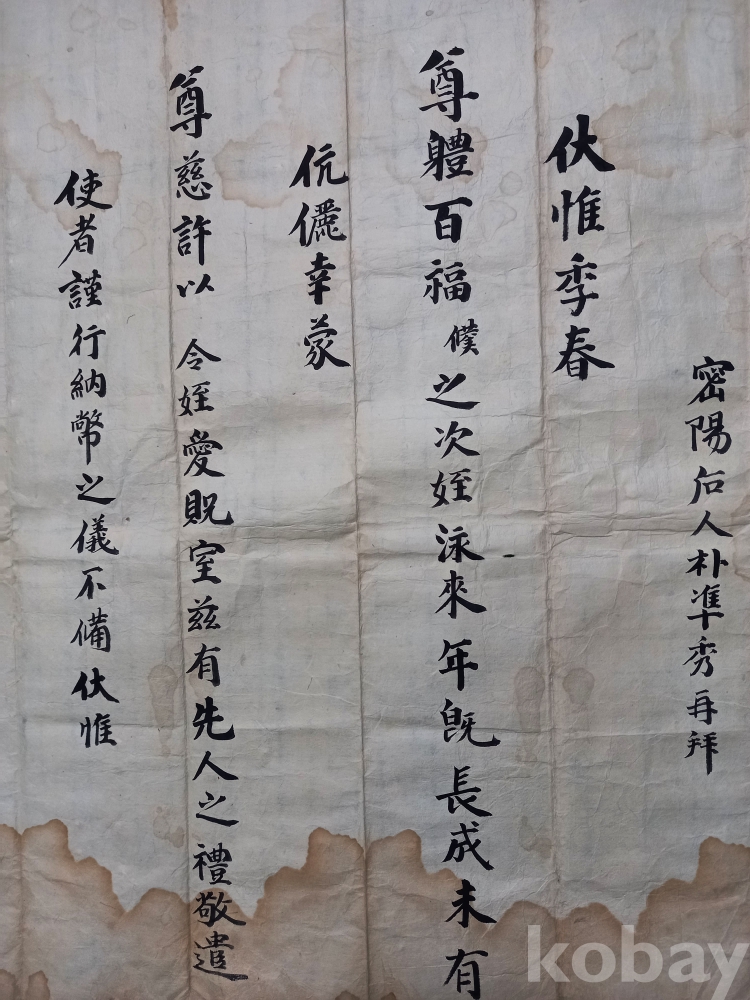 密陽后人朴準秀再拜
伏惟季春
尊體百福 僕之次姪泳來年旣長成未有
伉儷幸蒙
尊慈許以 令姪愛貺室玆有先人之禮敬遣
使者謹行納幣之儀不備伏惟
kobay